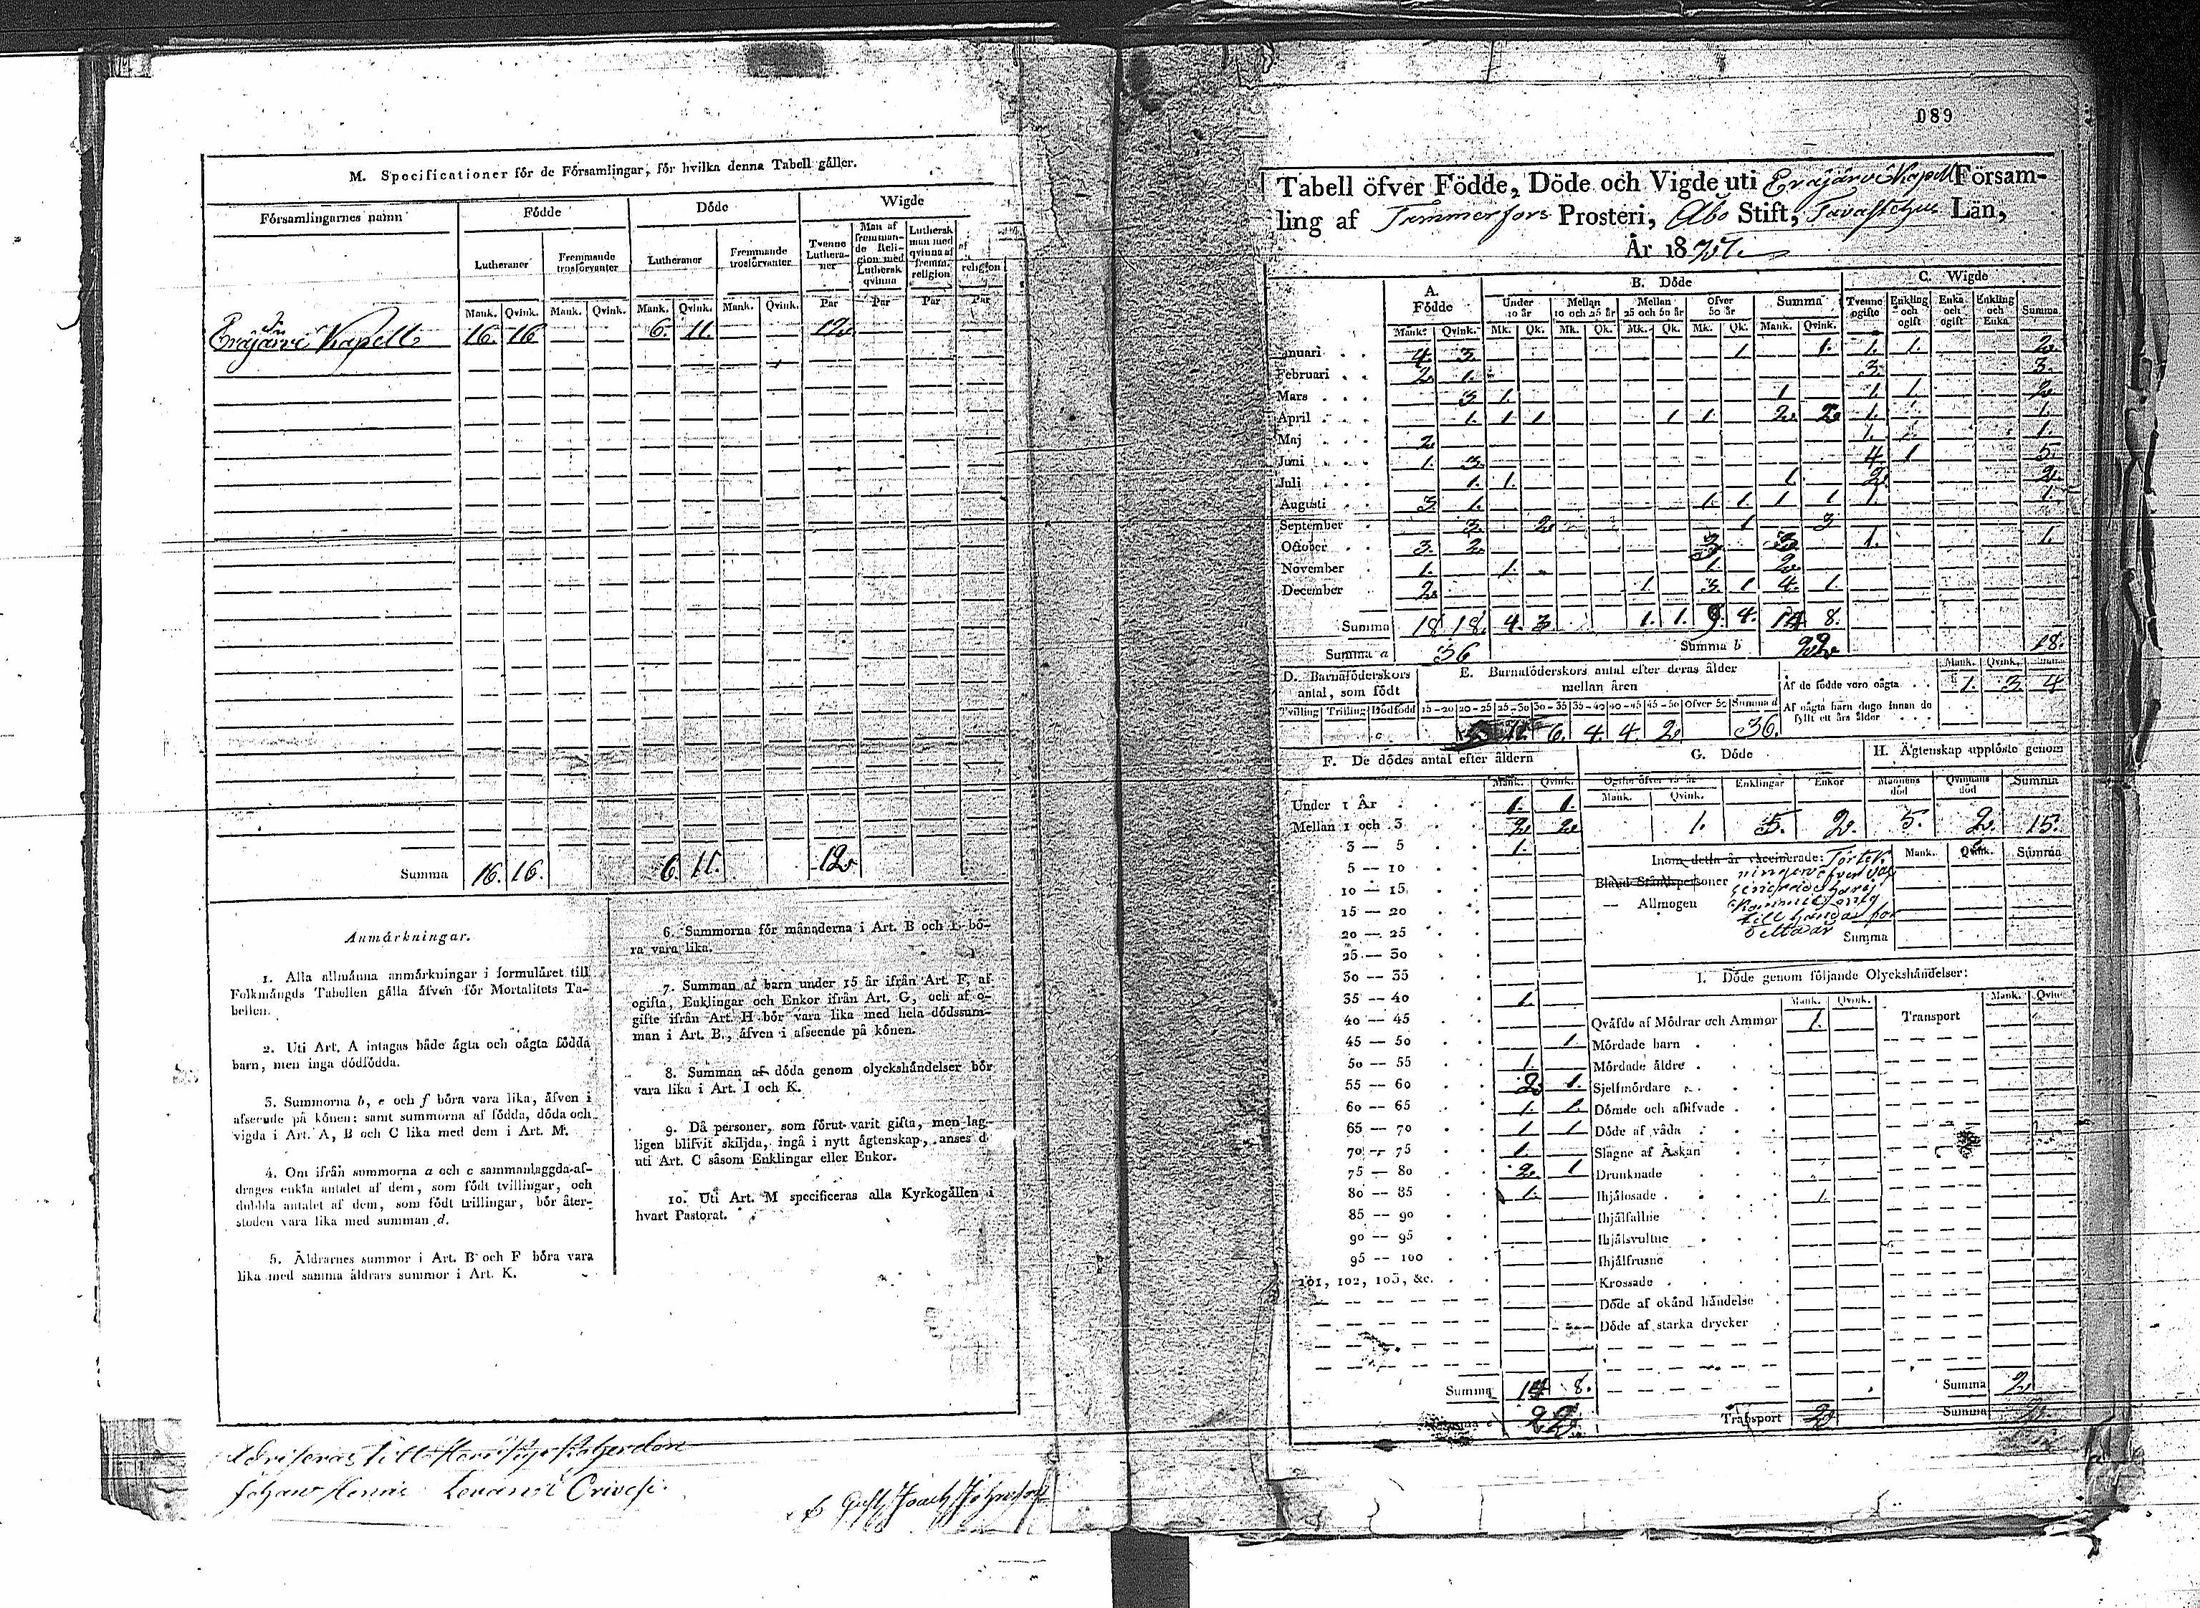 M. Specificationer för de Församlingar, för hvilka denna Tabell gäller.
Församlingarnes namn
Födde
Döde
Wigde
Lutheraner
Fremmande trosförvanter
Lutheraner
Fremmande trosförvanter
Tvenne Lutheraner
Man af fremmande Religion med Luthersk qvinna
Luthersk man med qvinna af fremm. religion
religion
Par Par Par Par
Mank. Qvink. Mank. Qvink. Mank. Qvink. Mank. Qvink.
Eräjärvi Kapell 16. 16 6. 11. 12
Summa 16. 16. 6 11. 12
Anmärkningar.
1. Alla allmänna anmärkningar i formuläret till
Folkmängds Tabellen gälla äfven för Mortalitets Ta-
bellen.
2. Uti Art. A intagas både ägta och oägta födda
barn, men inga dödfödda.
3. Summorna b, e och f böra vara lika, äfven i
afseende på könen: samt summorna af födda, döda och
vigda i Art. A, B och C lika med dem i Art. M.
4. Om ifrån summorna a och c sammanlaggda af-
drages enkla antalet af dem, som födt tvillingar, och
dubbla antalet af dem, som födt trillingar, bör åter-
stoden vara lika med summan d.
5. Åldrarnes summor i Art. B och F böra vara
lika med samma åldrars summor i Art. K.
6. Summorna för månaderna i Art. B och L bö-
ra vara lika.
7. Summan af barn under 15 år ifrån Art. F, af
ogifta, Enklingar och Enkor ifrån Art. G, och af o-
gifte ifrån Art. H bör vara lika med hela dödssum-
man i Art. B., äfven i afseende på könen.
8. Summan af döda genom olyckshändelser bör
vara lika i Art. I och K.
9. Då personer, som förut varit gifta, men lag-
ligen blifvit skiljda, ingå i nytt ägtenskap, anses d
uti Art. C såsom Enklingar eller Enkor.
10. Uti Art. M specificeras alla Kyrkogällen i
hvart Pastorat.
089
Tabell öfver Födde, Döde och Vigde uti Eräjärvi Kapell Försam-
ling af Tammerfors Prosteri, Åbo Stift, Tavastehus Län,
År 18
A. Födde
B. Döde
C. Wigde
Under 10 år
Mellan 10 och 25 år
Mellan 25 och 50 år
Öfver 50 år
Summa
Tvenne ogifte
Enkling och ogift
Enka och ogift
Enkling och Enka
Summa
Mank. Qvink. Mk. Qk. Mk. Qk. Mk. Qk. Mk. Qk. Mank. Qvink.
Januari 4 3. 1 1. 1. 1. 2
Februari 2 1. 3. 3.
Mars 3 1. 1 1. 1 2
April 1. 1 1 1 1. 2 2 1. 1.
Maj 2 1. 1.
Juni 1. 3. 4 1 5.
Juli 1. 1. 1. 2 2.
Augusti 3 1. 1. 1. 1 1 1. 1.
September 3. 2 1 3
October 3. 2. 3 3 1. 1.
November 1. 1. 1. 2
December 2 1. 3 1 4. 1.
Summa 18 18. 4. 3 1. 1. 9 4. 14 8.
Summa a 36 Summa b 22 18.
D. Barnaföderskors antal, som födt
E. Barnaföderskors antal efter deras ålder mellan åren
Tvilling Trilling Dödfödd 15-20 20-25 25-30 30-35 35-40 40-45 45-50 Öfver 50 Summa d
c 11. 6. 4. 4. 2 36.
Mank. Qvink. Summa
Af de födde voro oägta 1. 3 4
Af oägta barn dogo innan de fyllt ett års ålder
F. De dödes antal efter åldern
G. Döde
H. Ägtenskap upplöste genom
Mank. Qvink.
Ogifte öfver 15 år
Mank. Qvink. Enklingar Enkor
Mannens död Qvinnans död Summa
1. 5. 2. 5. 2. 15.
Under 1 År 1. 1.
Mellan 1 och 3 2 2
3 — 5 1.
5 — 10
10 — 15
15 — 20
20 — 25
25 — 30
30 — 35
35 — 40 1.
40 — 45
45 — 50 1.
50 — 55 1.
55 — 60 2 1.
60 — 65 1. 1.
65 — 70 1. 1
70 — 75 1.
75 — 80 2. 1
80 — 85 1.
85 — 90
90 — 95
95 — 100
101, 102, 103, &c.
Summa 14 8.
22
Inom detta år vaccinerade:
Mank. Qvink. Summa
Bland Ståndspersoner
— Allmogen
till handa för
detta år
Summa
I. Döde genom följande Olyckshändelser:
Mank. Qvink. Transport Mank. Qvink.
Qväfde af Mödrar och Ammor 1.
Mördade barn
Mördade äldre
Sjelfmördare
Dömde och aflifvade
Döde af våda
Slagne af Åskan
Drunknade
Ihjälosade 1
Ihjälfallne
Ihjälsvultne
Ihjälfrusne
Krossade
Döde af okänd händelse
Döde af starka drycker
Summa 2
Transport 2 Summa 2